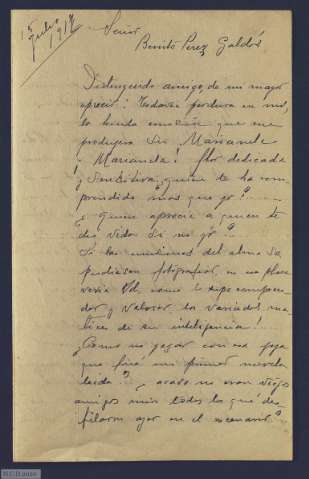 15
Julio
1917
Señor
Benito Pérez Galdós
Distinguido amigo de mi mayor
aprecio: Todavia perdura en mi,
la honda emoción que me
produjera su Marianela
¡Marianela! flor delicada
y sensitiva, quien te ha com
prendido más que yo!
¿ Quien aprecia a quien te
dió vida si no yo?
Si las emociones del alma se
pudiesen fotografiar, en una placa
veria Vd. como le supe compren
der y valorar los variados ma
tices de su inteligencia!
¿Como no gozar con esa joya
que fué mi primer novela
leida? ¿ acaso no eran viejos
amigos mios todos los que des
filaron ayer en el escenario?